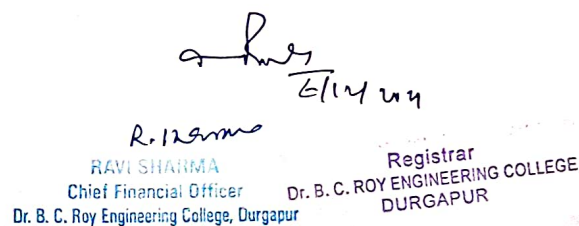 R. Sharma
RAVI SHARMA
Chief Financial Officer
Dr. B. C. Roy Engineering College, Durgapur
Registrar
Dr. B. C. ROY ENGINEERING COLLEGE
DURGAPUR